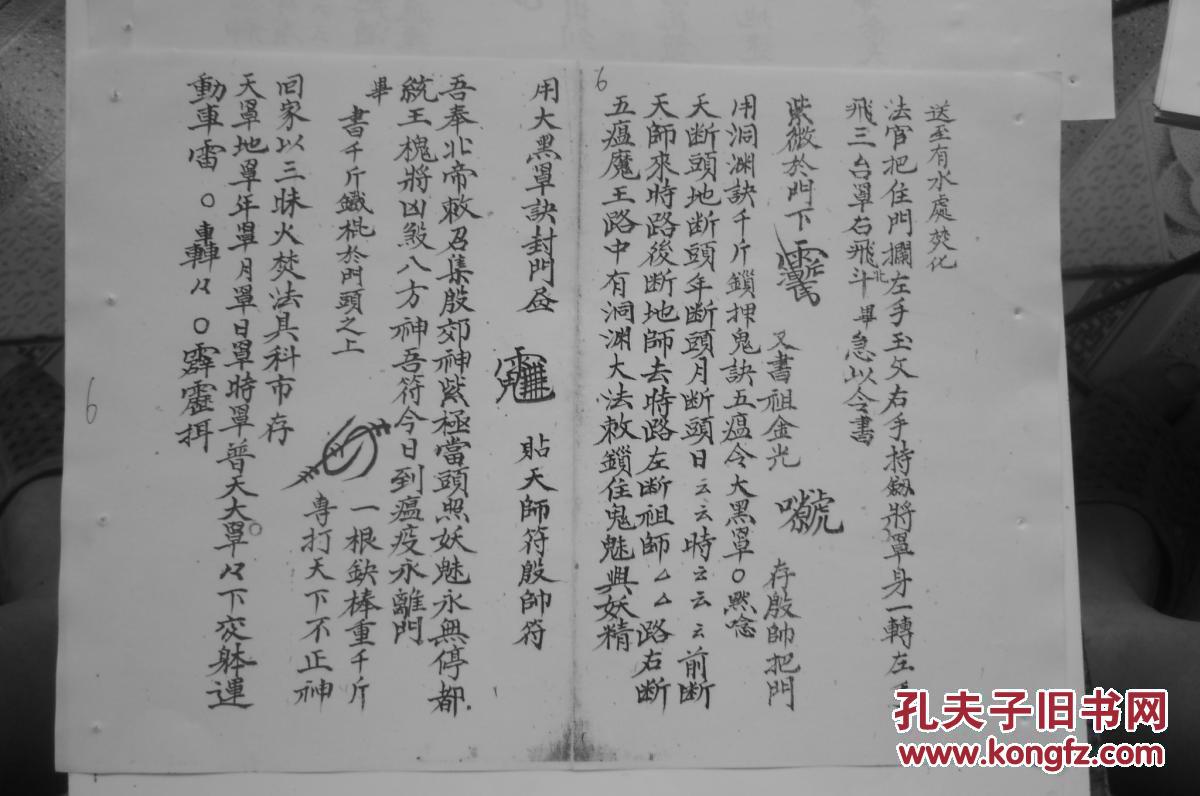 送至有水處焚化
法官把住門攔左手玉文右手持劔將罩身一轉左手
飛三台罩右飛北斗畢急以令書
紫微於門下 又書祖金光 存殷帥把門
用洞渊訣千斤鎖押鬼訣五瘟令大黑罩○黙唸
天断頭地断頭年断頭月断頭日云云時云云云前断
天師來時路後断地師去時路左断祖師厶厶路右断
五瘟魔王路中有洞渊大法敕鎖住鬼魅與妖精
6
用大黑罩訣封門為 貼天師符殷帥符
吾奉北帝敕召集殷郊神紫極當頭照妖魅永無停都
統王槐將凶煞八方神吾符今日到瘟疫永離門
畢 書千斤鐵棍於門頭之上
一根鈌棒重千斤
專打天下不正神
回家以三昧火焚法具科市存
天罩地罩年罩月罩日罩時罩普天大罩々下交躰運
動車雷○轟々○霹靂揖
6
孔夫子旧书网
www.kongfz.com